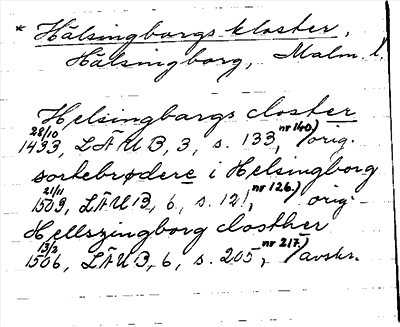 * Hälsingborgs kloster,
Hälsingborg, Malm. l.
Helsingbargs closter
28/10 1433, LÄUB, 3, s. 133, nr 140) orig.
sortebrødere i Helsingborg
21/11 1509, LÄUB, 6, s. 121, nr 126.) orig.
Hellszingborg closther
13/2 1506, LÄUB, 6, s. 205, nr 217.) avskr.